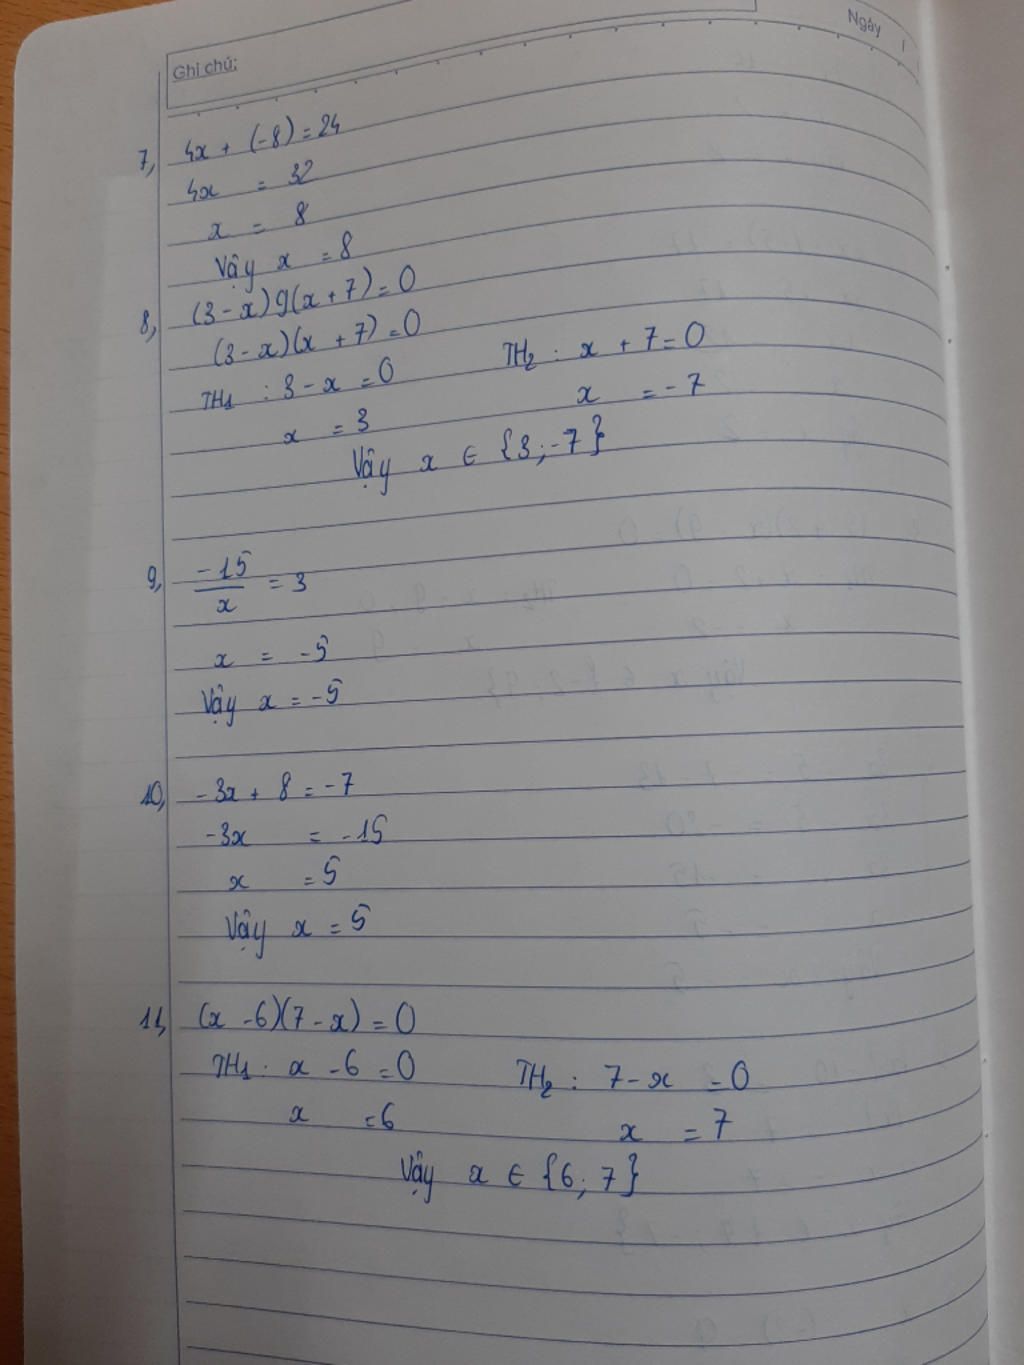 Ghi chú:
Ngày /
7, 4x + (-8) = 24
4x = 32
x = 8
Vậy x = 8
8, (3 - x) 9(x + 7) = 0
(3 - x)(x + 7) = 0
TH1 : 3 - x = 0 TH2 : x + 7 = 0
x = 3 x = - 7
Vậy x ∈ {3; -7}
9, -15/x = 3
x = -5
Vậy x = -5
10, - 3x + 8 = -7
-3x = -15
x = 5
Vậy x = 5
11, (x - 6)(7 - x) = 0
TH1 : x - 6 = 0 TH2 : 7 - x = 0
x = 6 x = 7
Vậy x ∈ {6; 7}